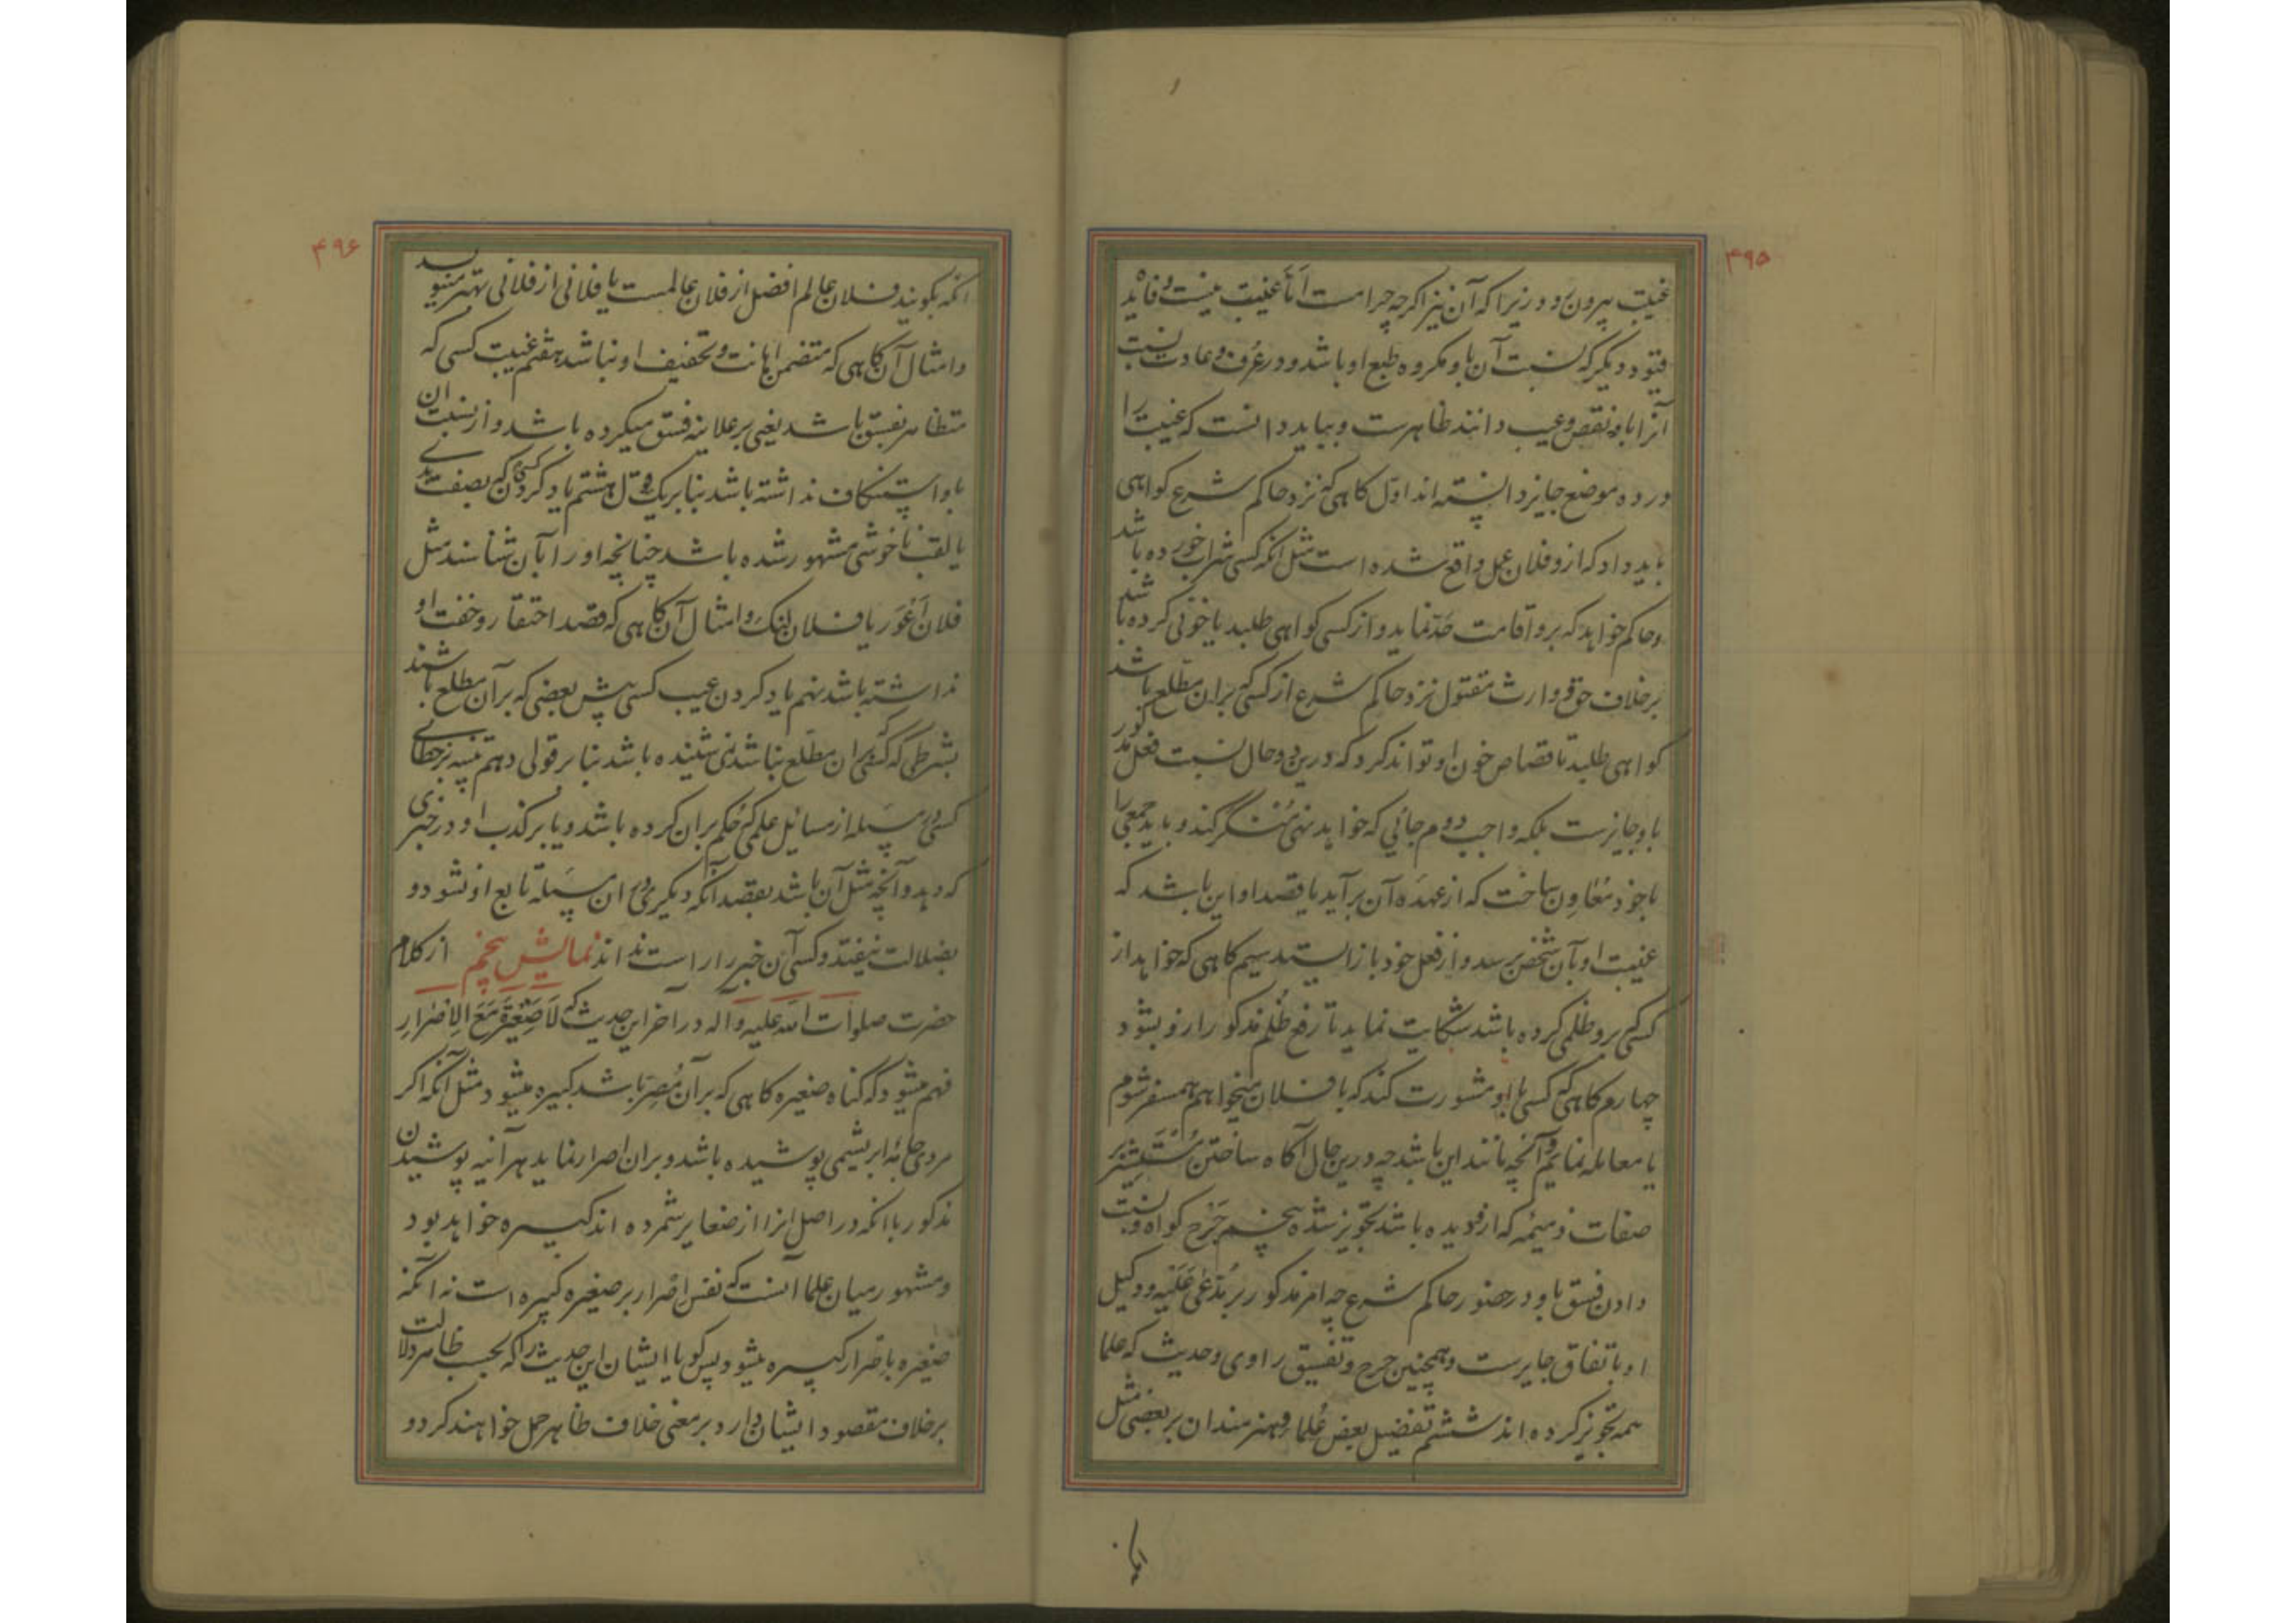 ۴۹۵
غیبت بیرون رود زیرا که آن نیز اگرچه حرامست اما غیبت نیست و فایده
قیود دیگر که نسبت آن باو مکروه طبع او باشد و در عرف و عادت نسبت
آنرا باو نقص و عیب دانند ظاهرست و بباید دانست که غیبت را
در ده موضع جایز دانسته اند اول کاهی که نزد حاکم شرع کواهی
باید داد که ازو فلان عمل واقع شده است مثل انکه کسی شراب خورده باشد
و حاکم خواهد که برو اقامت حد نماید و از کسی کواهی طلبد یا خونی کرده باشد
برخلاف حق و وارث مقتول نزد حاکم شرع از کسی که بران مطلع باشد
کواهی طلبد تا قصاص خون او تواند کرد که درین دو حال نسبت فعل مذکور
باو جایزست بلکه واجب دوم جائی که خواهد نهی منکر کند و باید جمعی را
با خود معاون ساخت که از عهده آن برآید یا قصد او این باشد که
غیبت او بآن شخص برسد و از فعل خود باز ایستد سیم کاهی که خواهد از
کسی که برو ظلمی کرده باشد شکایت نماید تا رفع ظلم مذکور ازو بشود
چهارم کاهی که کسی با او مشورت کند که با فلان میخواهم همسفر شوم
یا معامله نمایم و آنچه مانند این باشد چه درین حال آکاه ساختن مستشیر
صفات ذمیمه که ازو دیده باشد تجویز شده پنجم جرح کواه و نسبت
دادن فسق باو در حضور حاکم شرع چه امر مذکور بر مدعی علیه و وکیل
او باتفاق جایرست و همچنین جرح و تفسیق راوی و حدیث که علما
همه تجویز کرده اند ششم تفضیل بعض علما و هنرمندان بر بعضی مثل
۴۹۶
انکه بکویند فلان عالم افضل از فلان عالمست یا فلانی از فلانی بهتر مینویسد
و امثال آن کاهی که متضمن اهانت و تخفیف او نباشد هفتم غیبت کسی که
متظاهر بفسق باشد یعنی برعلانیه فسق میکرده باشد و از نسبت ان
باو استنکاف نداشته باشد بنا بر یک قول هشتم یاد کردن کسی که بصفت بدی
یا لقب ناخوشی مشهور شده باشد چنانچه او را بآن شناسند مثل
فلان اعور یا فلان لنک و امثال آن کاهی که قصد احتقار و خفت او
نداشته باشد نهم یاد کردن عیب کسی پیش بعضی که بر آن مطلع باشند
بشرطی که کسی که بران مطلع نباشد نمی شنیده باشد بنا بر قولی دهم تنبیه بر خطای
کسی در مسئله از مسائل علمی که حکم بران کرده باشد و یا بر کذب او در خبری
که دهد و آنچه مثل آن باشد بقصد آنکه دیکری در ان مسئله تابع او نشود و
بضلالت نیفتد و کسی آن خبر را راست نداند نمایش پنجم از کلام
حضرت صلوات الله علیه و آله در آخر این حدیث که لا صغیرة مع الاصرار
فهم میشود که کناه صغیره کاهی که بر آن مصر باشد کبیره میشود مثل آنکه اکر
مردی جامهٔ ابریشمی پوشیده باشد و بران اصرار نماید هرآینه پوشیدن
مذکور با انکه در اصل انرا از صغایر شمرده اند کبیره خواهد بود
و مشهور میان علما آنست که نفس اصرار بر صغیره کبیره است نه آنکه
صغیره باصرار کبیره میشود پس کویا ایشان این حدیث را که بحسب ظاهر دلالت
برخلاف مقصود ایشان دارد بر معنی خلاف ظاهر حمل خواهند کرد و